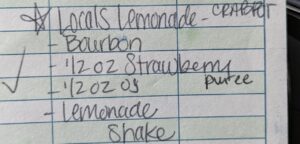 Locals Lemonade - CRABPOT
- Bourbon
- 1/2 oz Strawberry puree
- 1/2 oz OJ
- Lemonade
Shake